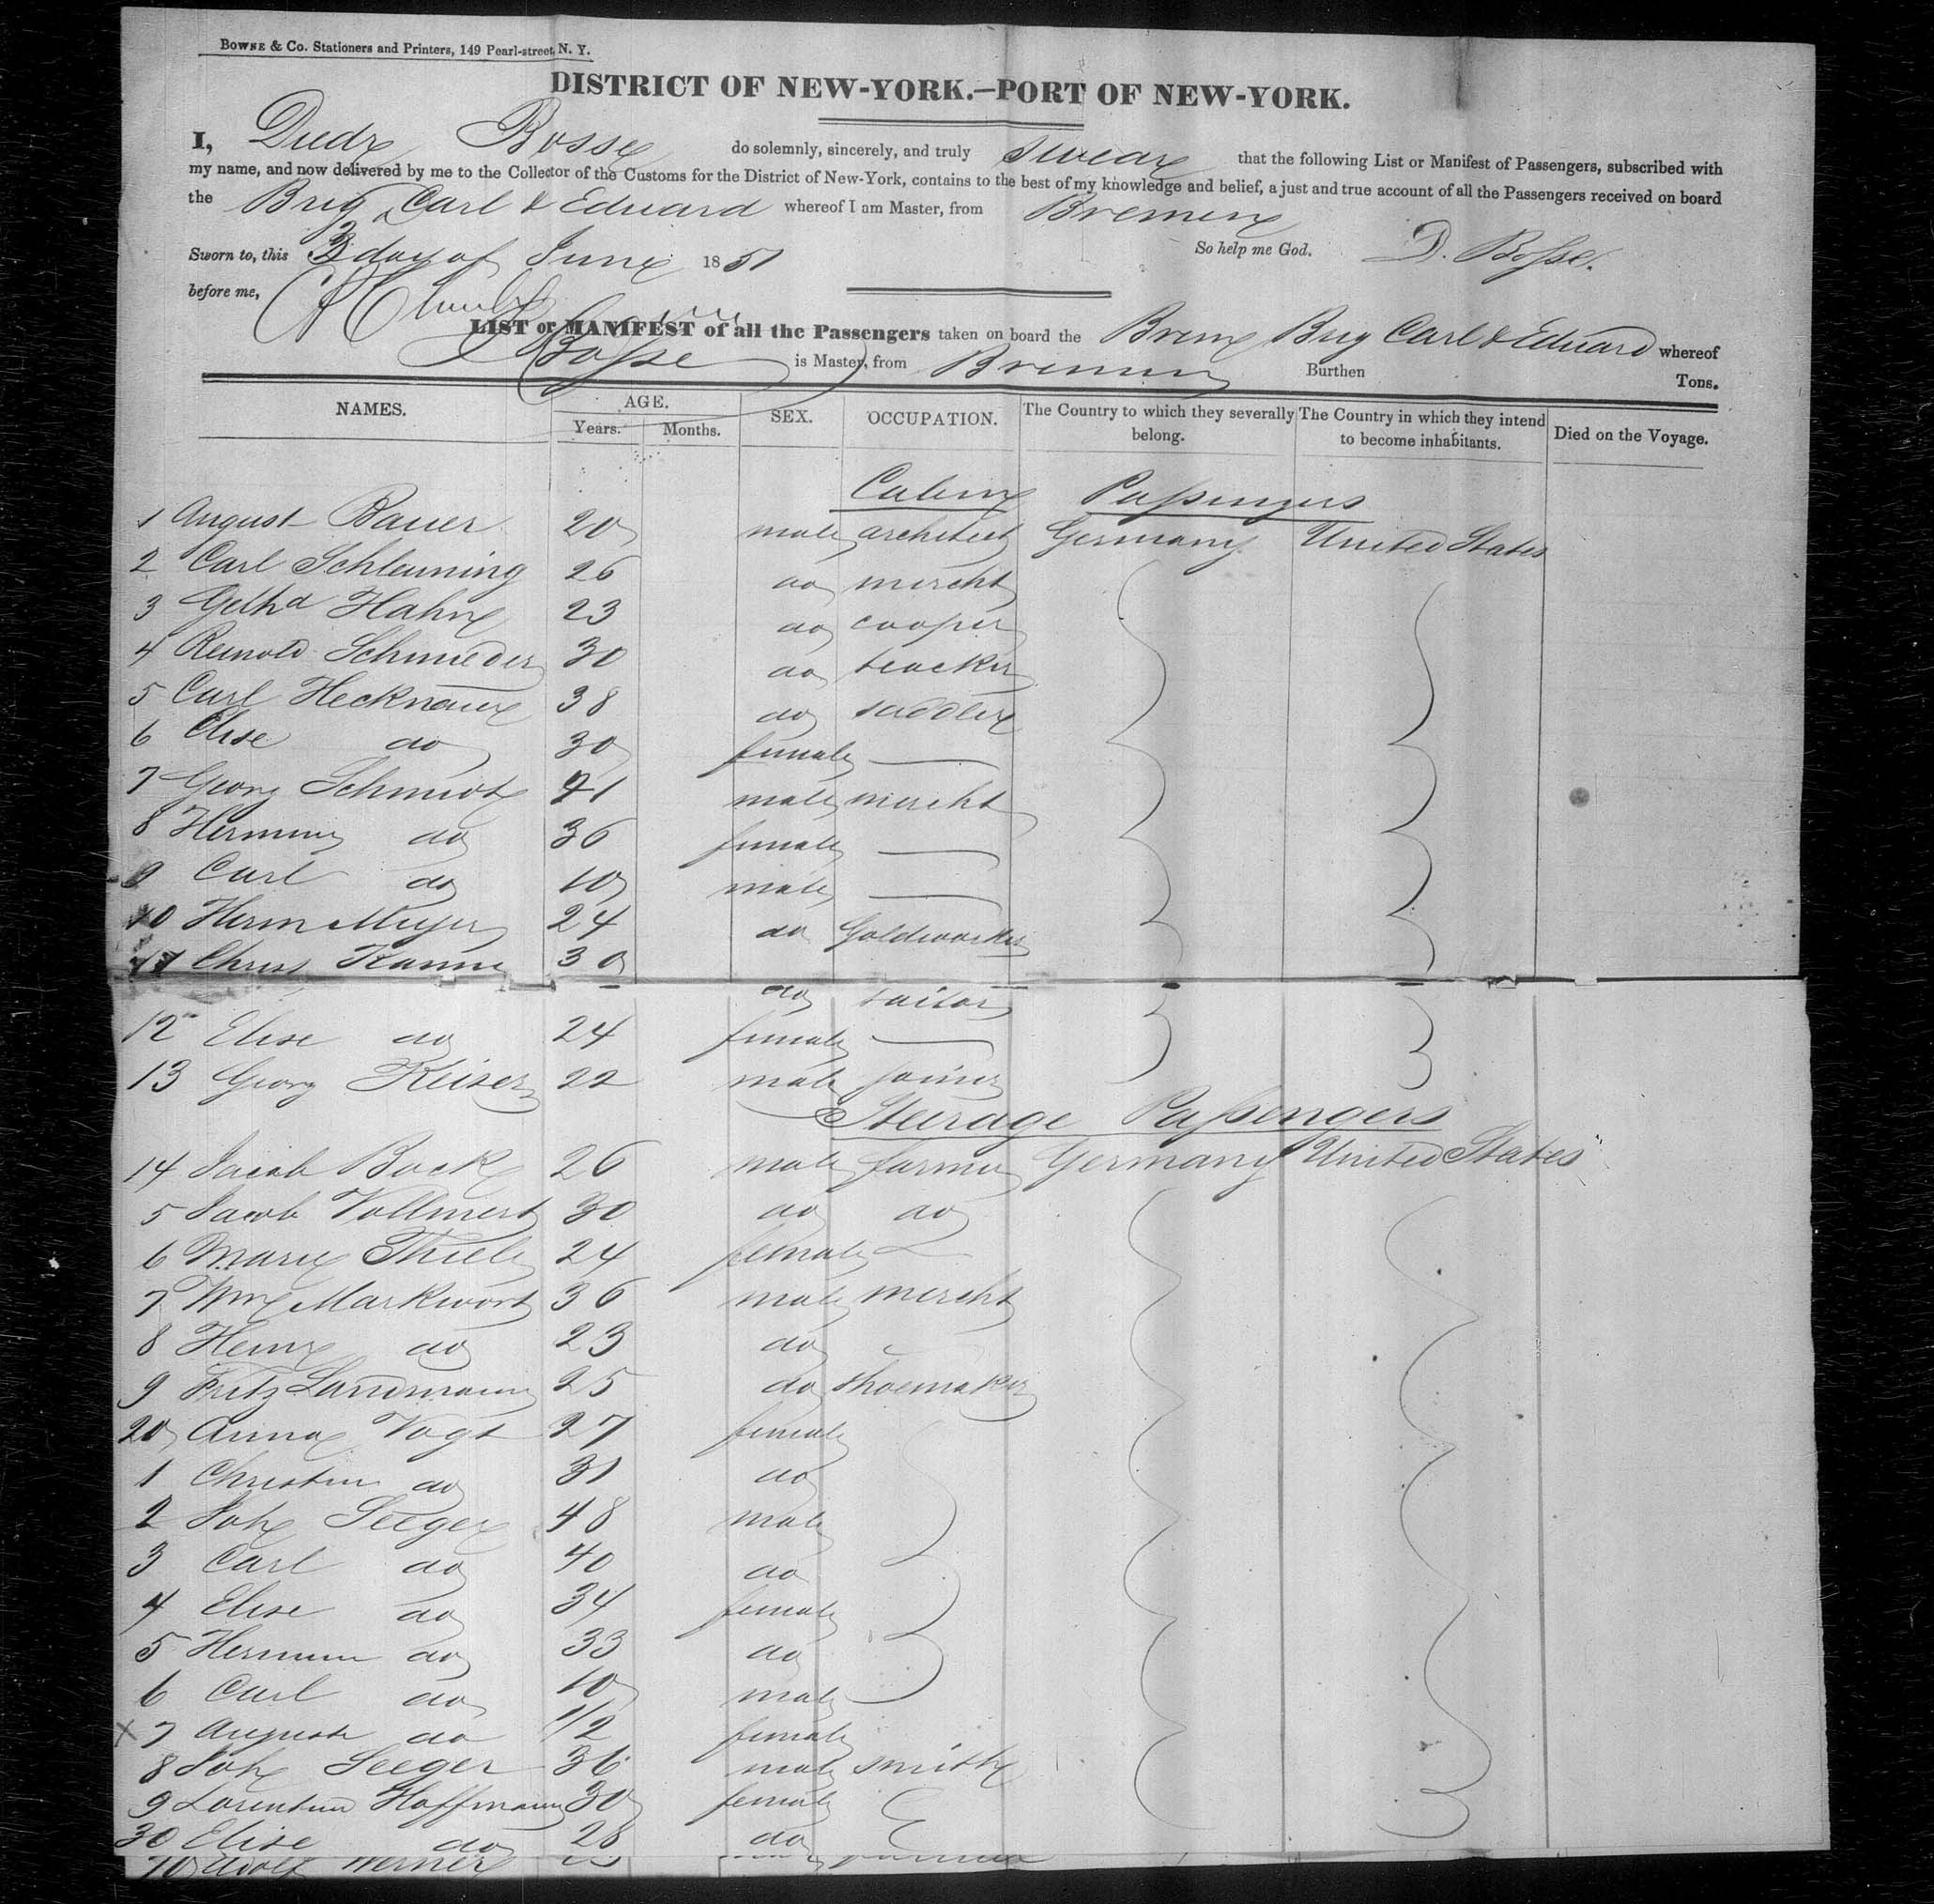 BOWNE & Co. Stationers and Printers, 149 Pearl-street, N. Y.
DISTRICT OF NEW-YORK.—PORT OF NEW-YORK.
I, Diedr Bosse do solemnly, sincerely, and truly swear that the following List or Manifest of Passengers, subscribed with
my name, and now delivered by me to the Collector of the Customs for the District of New-York, contains to the best of my knowledge and belief, a just and true account of all the Passengers received on board
the Brig Carl & Eduard whereof I am Master, from Bremen
Sworn to, this 3 day of June 1851 So help me God. D. Bosse.
before me,
LIST or MANIFEST of all the Passengers taken on board the Brem Brig Carl & Eduard whereof
Bosse is Master, from Bremen Burthen Tons.
NAMES. AGE. Years. Months. SEX. OCCUPATION. The Country to which they severally belong. The Country in which they intend to become inhabitants. Died on the Voyage.
Cabin Passengers
1 August Bauer 20 male architect Germany United States
2 Carl Schleuning 26 do mercht
3 Hahn 23 do cooper
4 Reinold Schmieder 30 do teacher
5 Carl Hecknaur 38 do saddler
6 Elise do 30 female
7 Georg Schmidt 41 male mercht
8 Hermine do 36 female
9 Carl do 10 male
10 Herm Meyer 24 do Goldworker
11 Christ Kanne 30 do tailor
12 Elise do 24 female
13 Georg Keiser 22 male joiner
Steerage Passengers
14 Jacob Bock 26 male farmer Germany United States
5 Jacob Vollmert 30 do do
6 Marie Thiele 24 female
7 Wm Markwort 36 male mercht
8 Henr do 23 do
9 Fritz Landmann 25 do shoemaker
20 Anna Vogt 27 female
1 Christin do 31 do
2 Joh Seeger 48 male
3 Carl do 40 do
4 Elise do 34 female
5 Hermin do 33 do
6 Carl do 10 male
x 7 Auguste do 1/2 female
8 Joh Seeger 36 male smith
9 Hoffmann 30 female
30 Elise do 28 do
Adolf Werner